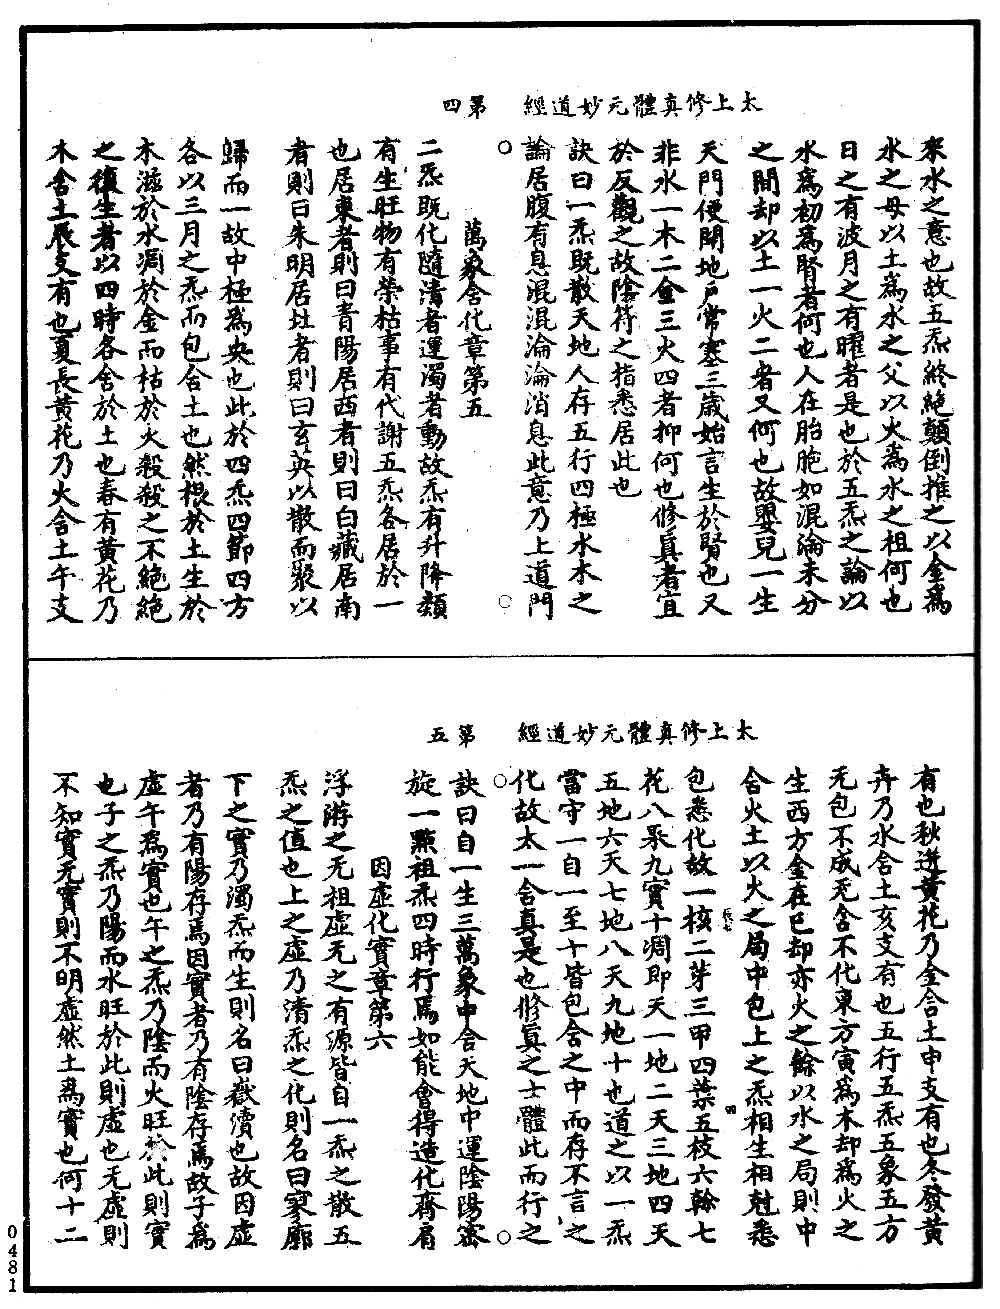 太上修真體元妙道經　第四
来水之意也故五炁終絶顛倒推之以金爲
水之母以土爲水之父以火爲水之祖何也
日之有波月之有曜者是也於五炁之論以
水爲初爲腎者何也人在胎胞如混淪未分
之間却以土一火二者又何也故嬰兒一生
天門便開地戶常塞三歲始言生於腎也又
非水一木二金三火四者抑何也修真者宜
於反觀之故陰符之指悉居此也
訣曰一炁既散天地人存五行四極水木之
論居腹有息混混淪淪消息此意乃上道門
萬象含化章第五
二炁既化隨清者運濁者動故炁有升降類
有生旺物有榮枯事有代謝五炁各居於一
也居東者則曰青陽居西者則曰白藏居南
者則曰朱明居北者則曰玄英以散而聚以
歸而一故中極爲央也此於四炁四節四方
各以三月之炁而包含土也然根於土生於
木滋於水凋於金而枯於火殺殺之不絶絶
之復生者以四時各含於土也春有黃花乃
木含土辰支有也夏長黃花乃火含土午支
太上修真體元妙道經　第五
有也秋遊黃花乃金含土申支有也冬發黃
卉乃水含土亥支有也五行五炁五象五方
无包不成无含不化東方寅爲木却爲火之
生西方金在巳却亦火之餘以水之局則中
含火土以火之局中包上之炁相生相尅悉
包悉化故一核二芽三甲四葉五枝六幹七
花八果九實十凋即天一地二天三地四天
五地六天七地八天九地十也道之以一炁
當守一自一至十皆包含之中而存不言之
化故太一含真是也修真之士體此而行之
訣曰自一生三萬象中含天地中運陰陽密
旋一點祖炁四時行焉如能會得造化齊肩
因虛化實章第六
浮游之无祖虛无之有源皆自一炁之散五
炁之值也上之虛乃清炁之化則名曰寥廓
下之實乃濁炁而生則名曰嶽瀆也故因虛
者乃有陽存焉因實者乃有陰存焉故子爲
虛午爲實也午之炁乃陰而火旺於此則實
也子之炁乃陽而水旺於此則虛也无虛則
不知實无實則不明虛然土爲實也何十二
0481